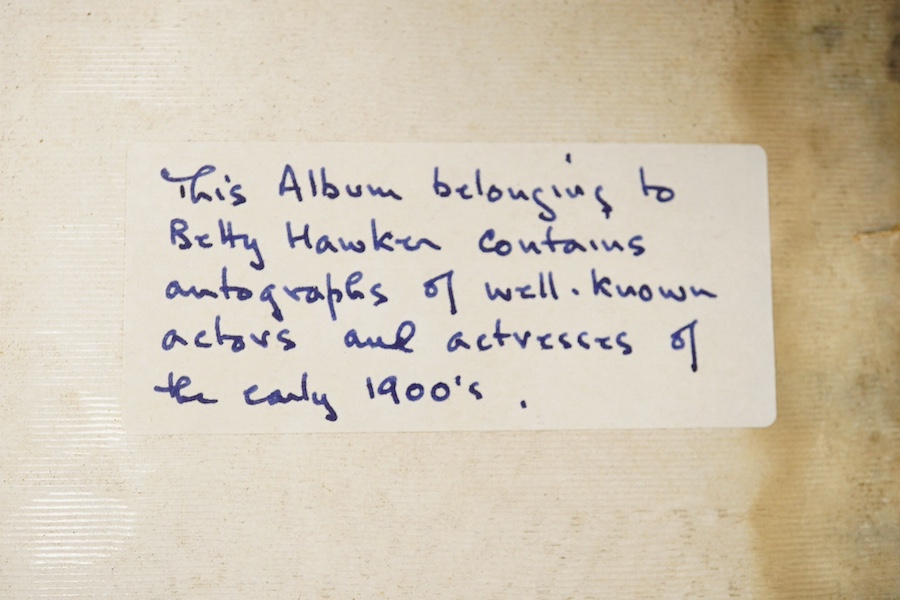 This Album belonging to
Betty Hawker contains
autographs of well-known
actors and actresses of
the early 1900's.